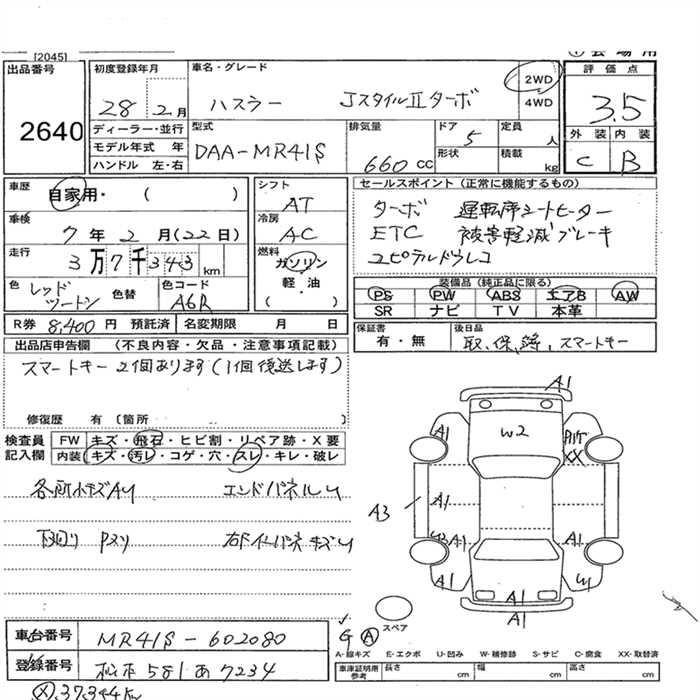 [2045]
出品番号
2640
初度登録年月
28 2月
ディーラー・並行
モデル年式 年
ハンドル 左・右
車名・グレード
ハスラー JスタイルⅡターボ
2WD
4WD
型式
DAA-MR41S
排気量
660 cc
ドア 5
形状
定員 人
積載 kg
評価点
3.5
外装 内装
C B
車歴
自家用・( )
車検
7年2月(22日)
走行
3万7千343km
色
レッド
ツートン
色替
色コード
A6R
シフト
AT
冷房
AC
燃料
ガソリン
軽・油
( )
R券 8,400円 預託済
名変期限 月 日
セールスポイント (正常に機能するもの)
ターボ 運転席シートヒーター
ETC 被害軽減ブレーキ
ユピテルドラレコ
装備品 (純正品に限る)
PS PW ABS エアB AW
SR ナビ TV 本革
保証書
有・無
後日品
取、保、簿、スマートキー
出品店申告欄 (不良内容・欠品・注意事項記載)
スマートキー2個あります(1個後送します)
修復歴 有 〔箇所
検査員
記入欄
FW キズ・飛石・ヒビ割・リペア跡・X要
内装 キズ・汚レ・コゲ・穴・スレ・キレ・破レ
各所小キズAU エンドパネルU
下回り Pヌリ
A1
W2
A1
A1
A3
A1
A1
A1
A1
W1
A1
A1
XX
スペア
G A
A-線キズ E-エクボ U-凹み W-補修跡 S-サビ C-腐食 XX-取替済
車庫証明用
参考
長さ cm 幅 cm 高さ cm
車台番号
MR41S-602080
登録番号
松本 581 あ 7234